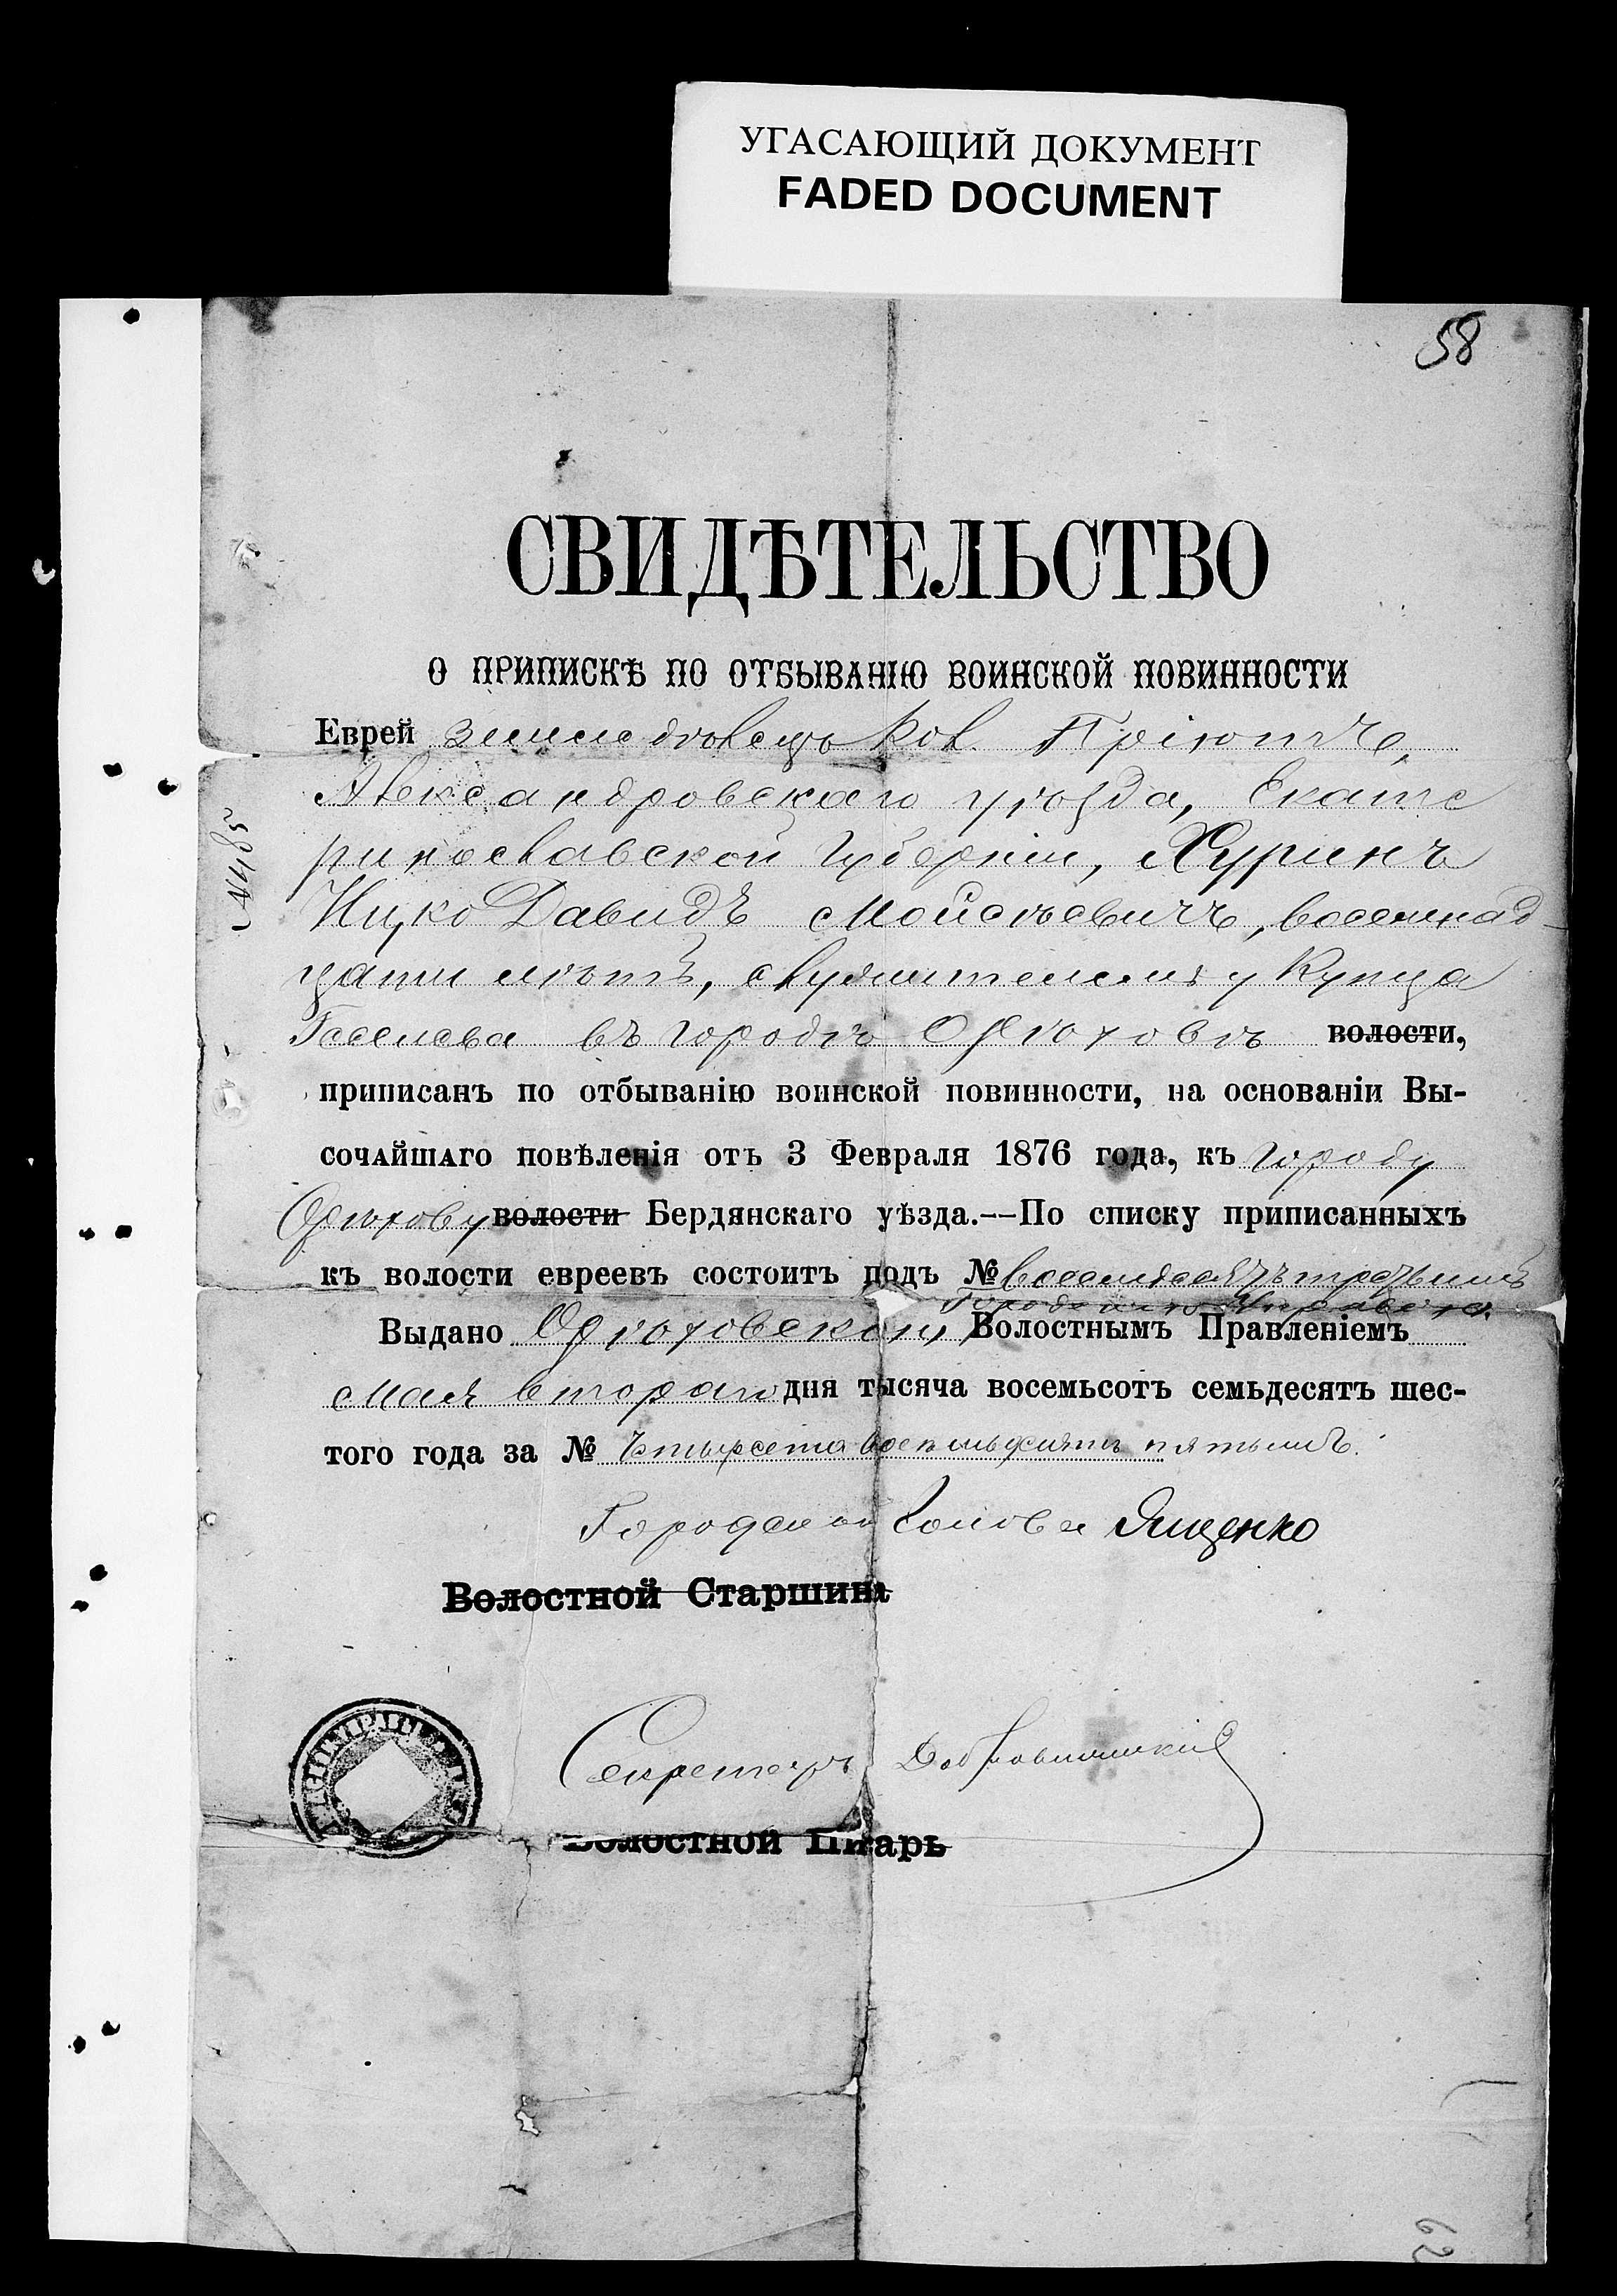 УГАСАЮЩИЙ ДОКУМЕНТ
FADED DOCUMENT
58
СВИДѢТЕЛЬСТВО
О ПРИПИСКѢ ПО ОТБЫВАНІЮ ВОИНСКОЙ ПОВИННОСТИ
Еврей землѣ дѣлецъ Кол. Пріютъ,
Александровскаго уѣзда, Екате
ринославской Губерніи, Хуринъ
Ицко Давидъ Мойсѣевичъ, восемнад-
цати лѣтъ, служителемъ у Купца
въ городѣ Орѣховѣ волости,
приписанъ по отбыванію воинской повинности, на основаніи Вы-
сочайшаго повѣленія отъ 3 Февраля 1876 года, къ городу
Орѣхову волости Бердянскаго уѣзда.—По списку приписанныхъ
къ волости евреевъ состоитъ подъ № восемдесятъ третьимъ
Городскою Управою.
Выдано Орѣховскою Волостнымъ Правленіемъ
Мая втораго дня тысяча восемьсотъ семьдесятъ шес-
того года за № четыреста восемьдесятъ пятымъ.
Городской Голова Ященко
Волостной Старшина
Секретарь
Волостной Писарь
62